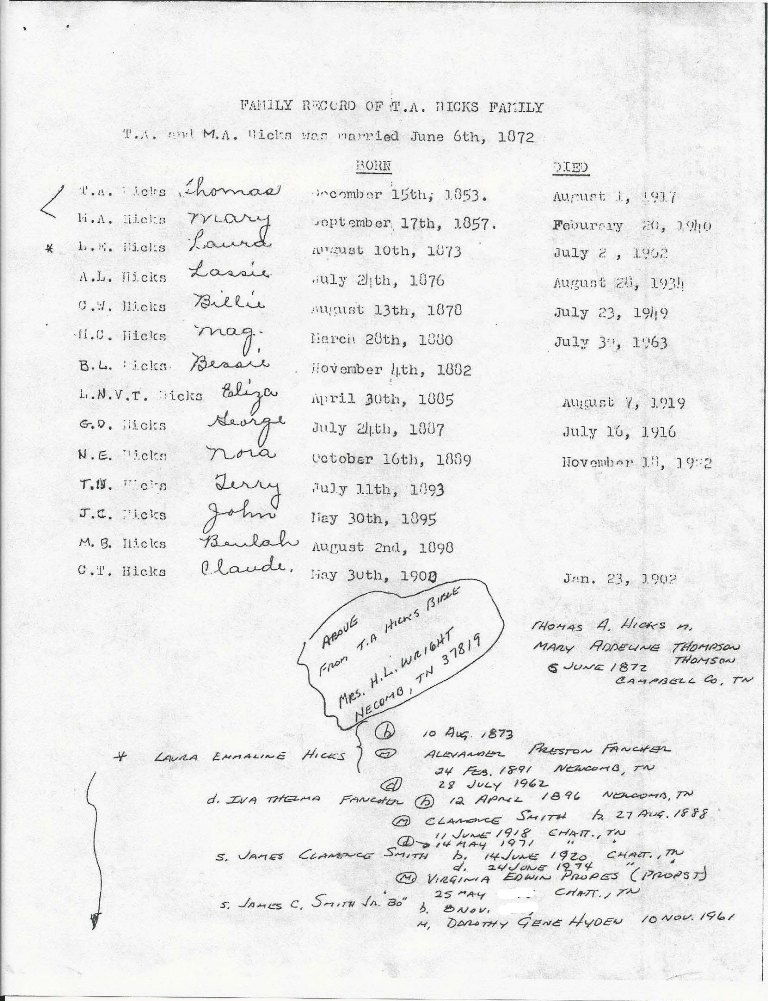 FAMILY RECORD OF T.A. HICKS FAMILY
T.A. and M.A. Hicks was married June 6th, 1872
BORN DIED
T.A. Hicks Thomas December 15th, 1853. August 1, 1917
M.A. Hicks Mary September 17th, 1857. Feburary 20, 1940
* L.E. Hicks Laura August 10th, 1873 July 2 , 1962
A.L. Hicks Lassie July 24th, 1876 August 28, 1934
C.W. Hicks Billie August 13th, 1878 July 23, 1949
M.C. Hicks Mag. March 28th, 1880 July 30, 1963
B.L. Hicks Bessie November 4th, 1882
L.N.V.T. Hicks Eliza April 30th, 1885 August 7, 1919
G.D. Hicks George July 24th, 1887 July 16, 1916
N.E. Hicks Nora October 16th, 1889 November 18,
T.N. Hicks Terry July 11th, 1893
J.C. Hicks John May 30th, 1895
M.B. Hicks Beulah August 2nd, 1898
C.T. Hicks Claude. May 30th, 1900 Jan. 23, 1902
ABOVE
FROM T.A HICKS BIBLE
MRS. H.L. WRIGHT
NECOMB, TN 37819
THOMAS A. HICKS m.
MARY ADDELINE THOMPSON
THOMSON
6 JUNE 1872
CAMPBELL CO, TN
* LAURA EMMALINE HICKS (b) 10 AUG. 1873
(m) ALEXANDER PRESTON FANCHER
24 FEB. 1891 NEWCOMB, TN
(d) 28 JULY 1962
d. IVA THELMA FANCHER (b) 12 APRIL 1896 NEWCOMB, TN
(m) CLARENCE SMITH b. 27 AUG. 1888
11 JUNE 1918 CHATT., TN
(d) 14 MAY 1971 " "
s. JAMES CLARENCE SMITH b. 14 JUNE 1920 CHATT., TN
d. 24 JUNE 1974 " "
(M) VIRGINIA EDWIN PROPES (PROPST)
25 MAY CHATT., TN
s. JAMES C. SMITH JR. "BO" b. 8 NOV.
M. DOROTHY GENE HYDEN 10 NOV. 1961